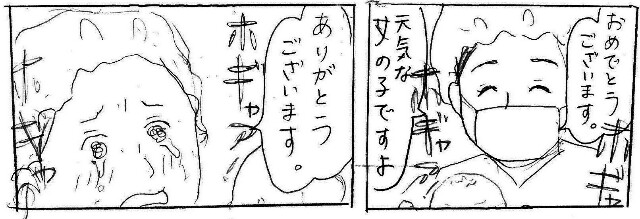 おめでとう
ございます。
ホギャ
天気な
女の子ですよ
ホギャ
ありがとう
ございます。
ホギャ
ホギャ